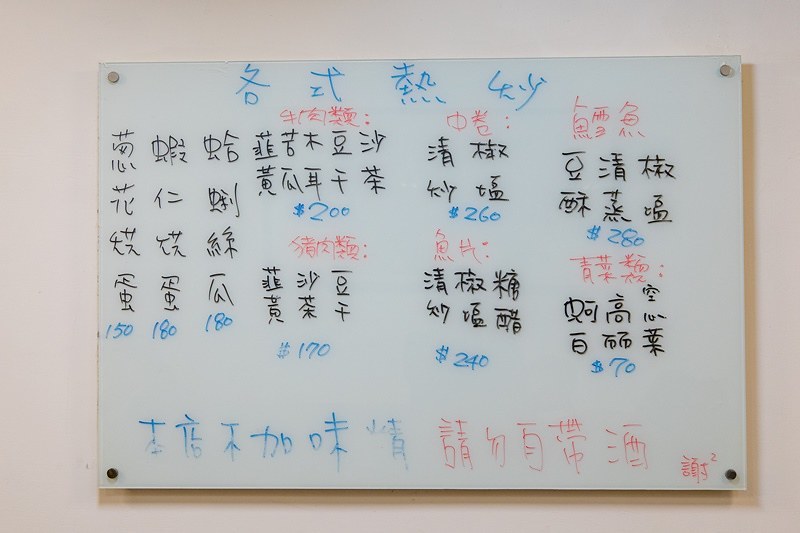 各式熱炒
葱花烘蛋
150
蝦仁烘蛋
180
蛤蜊絲瓜
180
牛肉類：
韮黃
苦瓜
木耳
豆干
沙茶
$200
豬肉類：
韮黃
沙茶
豆干
$170
中卷：
清炒
椒塩
$260
魚片：
清炒
椒塩
糖醋
$240
鱈魚
豆酥
清蒸
椒塩
$280
青菜類：
蚵白
高丽
空心菜
$70
本店不加味精
請勿自帶酒
謝²